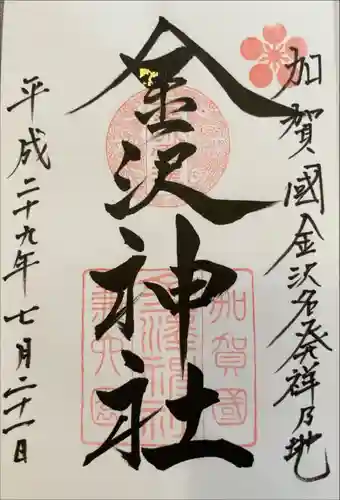 加賀國金沢名発祥乃地
金沢神社
平成二十九年七月二十一日
加賀國
金澤神社
兼六園